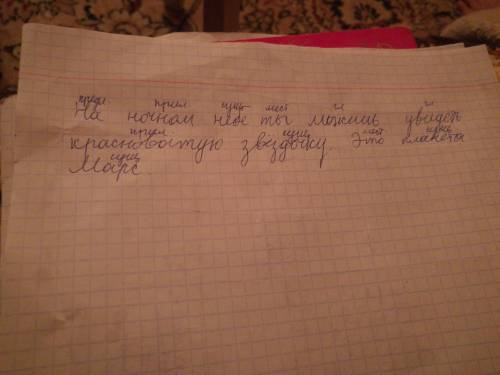 предл прил сущ мест гл гл
На ночном небе ты можешь увидеть
прил сущ мест сущ
красноватую звёздочку. Это планета
сущ
Марс.